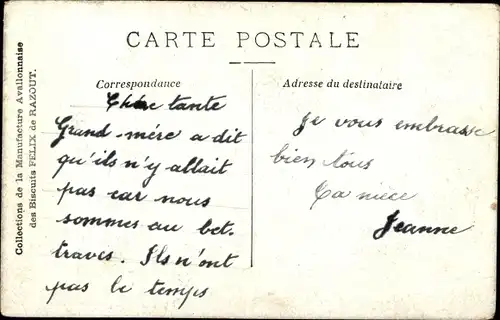 CARTE POSTALE
Correspondance
Chère tante
Grand-mère a dit
qu'ils n'y allait
pas car nous
sommes au bet-
traves. Ils n'ont
pas le temps
Adresse du destinataire
Je vous embrasse
bien tous
Ta niece
Jeanne
Collections de la Manufacture Avallonnaise
des Biscuits FELIX de RAZOUT.